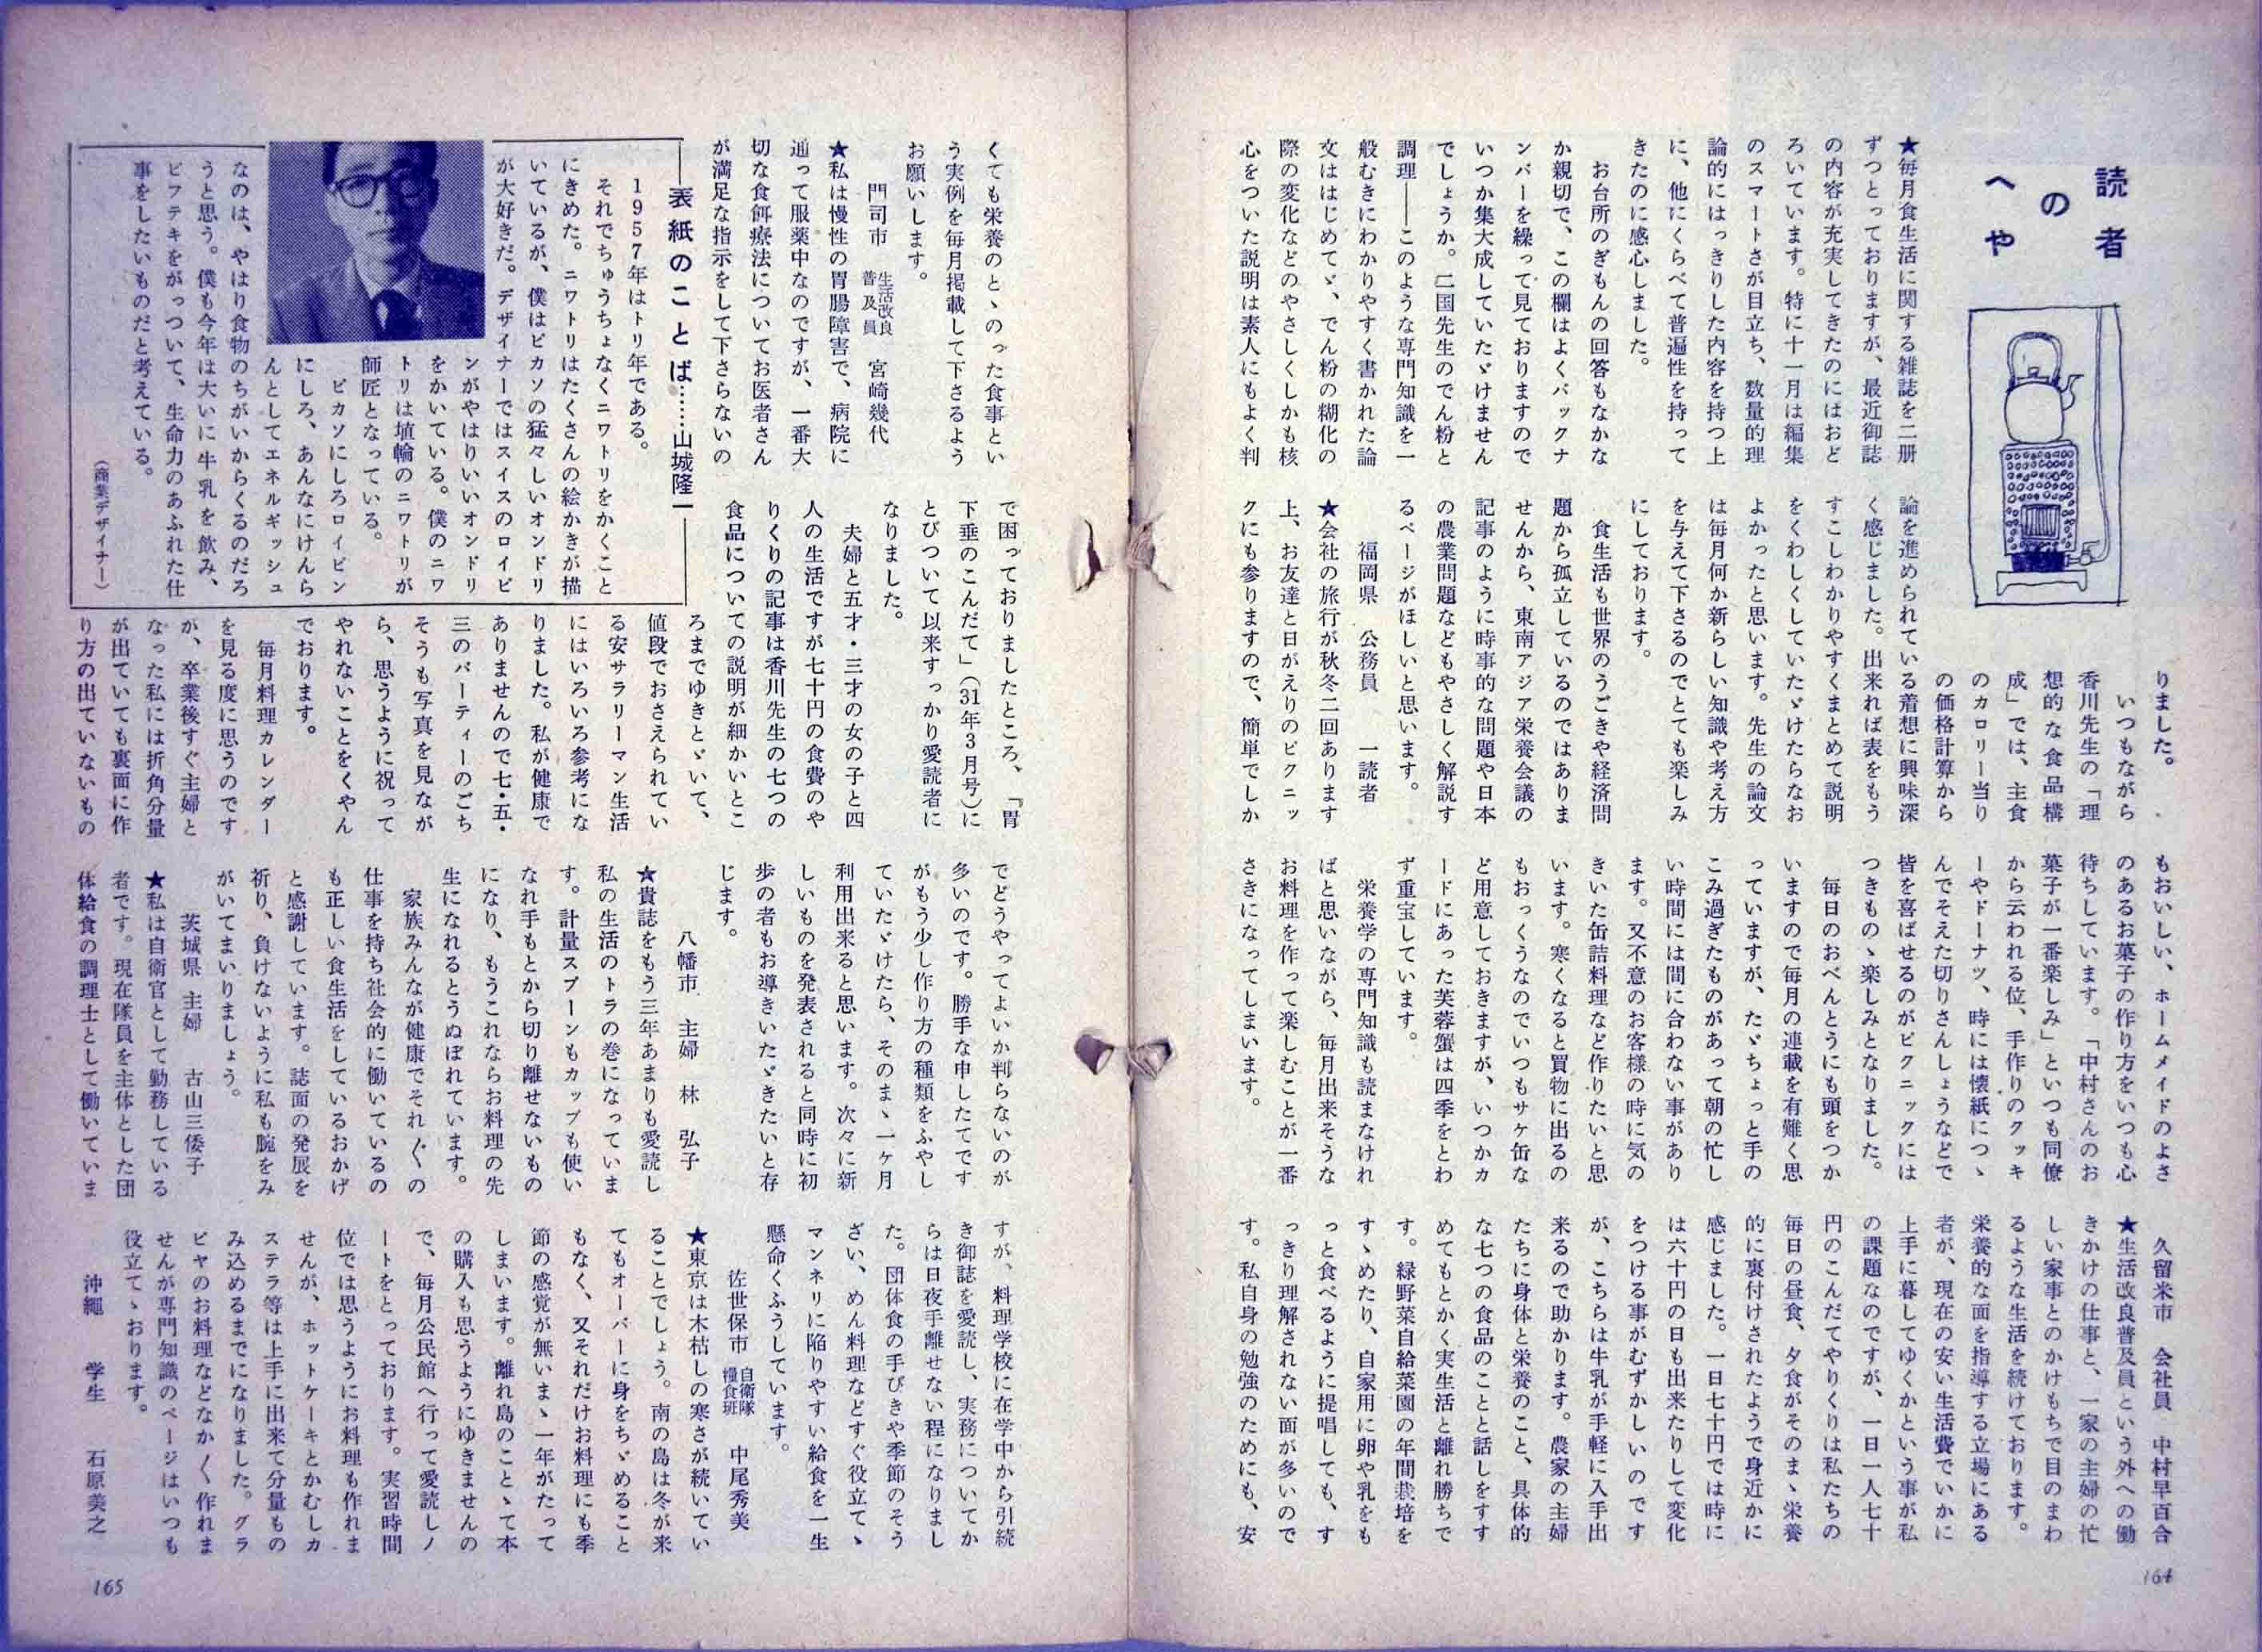 読者
の
へや
★毎月食生活に関する雑誌を二冊
ずつとっておりますが、最近御誌
の内容が充実してきたのにはおど
ろいています。特に十一月は編集
のスマートさが目立ち、数量的理
論的にはっきりした内容を持つ上
に、他にくらべて普遍性を持って
きたのに感心しました。
お台所のぎもんの回答もなかな
か親切で、この欄はよくバックナ
ンバーを繰って見ておりますので
いつか集大成していたゞけません
でしょうか。二国先生のでん粉と
調理――このような専門知識を一
般むきにわかりやすく書かれた論
文ははじめてゞ、でん粉の糊化の
際の変化などのやさしくしかも核
心をついた説明は素人にもよく判
りました。
いつもながら
香川先生の「理
想的な食品構
成」では、主食
のカロリー当り
の価格計算から
論を進められている着想に興味深
く感じました。出来れば表をもう
すこしわかりやすくまとめて説明
をくわしくしていたゞけたらなお
よかったと思います。先生の論文
は毎月何か新らしい知識や考え方
を与えて下さるのでとても楽しみ
にしております。
食生活も世界のうごきや経済問
題から孤立しているのではありま
せんから、東南アジア栄養会議の
記事のように時事的な問題や日本
の農業問題などもやさしく解説す
るページがほしいと思います。
福岡県 公務員 一読者
★会社の旅行が秋冬二回あります
上、お友達と日がえりのピクニッ
クにも参りますので、簡単でしか
もおいしい、ホームメイドのよさ
のあるお菓子の作り方をいつも心
待ちしています。「中村さんのお
菓子が一番楽しみ」といつも同僚
から云われる位、手作りのクッキ
ーやドーナツ、時には懐紙につゝ
んでそえた切りさんしょうなどで
皆を喜ばせるのがピクニックには
つきものゝ楽しみとなりました。
毎日のおべんとうにも頭をつか
いますので毎月の連載を有難く思
っていますが、たゞちょっと手の
こみ過ぎたものがあって朝の忙し
い時間には間に合わない事があり
ます。又不意のお客様の時に気の
きいた缶詰料理など作りたいと思
います。寒くなると買物に出るの
もおっくうなのでいつもサケ缶な
ど用意しておきますが、いつかカ
ードにあった芙蓉蟹は四季をとわ
ず重宝しています。
栄養学の専門知識も読まなけれ
ばと思いながら、毎月出来そうな
お料理を作って楽しむことが一番
さきになってしまいます。
久留米市 会社員 中村早百合
★生活改良普及員という外への働
きかけの仕事と、一家の主婦の忙
しい家事とのかけもちで目のまわ
るような生活を続けております。
栄養的な面を指導する立場にある
者が、現在の安い生活費でいかに
上手に暮してゆくかという事が私
の課題なのですが、一日一人七十
円のこんだてやりくりは私たちの
毎日の昼食、夕食がそのまゝ栄養
的に裏付けされたようで身近かに
感じました。一日七十円では時に
は六十円の日も出来たりして変化
をつける事がむずかしいのです
が、こちらは牛乳が手軽に入手出
来るので助かります。農家の主婦
たちに身体と栄養のこと、具体的
な七つの食品のことと話しをすす
めてもとかく実生活と離れ勝ちで
す。緑野菜自給菜園の年間栽培を
すゝめたり、自家用に卵や乳をも
っと食べるように提唱しても、す
っきり理解されない面が多いので
す。私自身の勉強のためにも、安
164
くても栄養のとゝのった食事とい
う実例を毎月掲載して下さるよう
お願いします。
門司市 生活改良普及員 宮崎幾代
★私は慢性の胃腸障害で、病院に
通って服薬中なのですが、一番大
切な食餌療法についてお医者さん
が満足な指示をして下さらないの
で困っておりましたところ、「胃
下垂のこんだて」(31年3月号)に
とびついて以来すっかり愛読者に
なりました。
夫婦と五才・三才の女の子と四
人の生活ですが七十円の食費のや
りくりの記事は香川先生の七つの
食品についての説明が細かいとこ
ろまでゆきとゞいて、
値段でおさえられてい
る安サラリーマン生活
にはいろいろ参考にな
りました。私が健康で
ありませんので七・五・
三のパーティーのごち
そうも写真を見なが
ら、思うように祝って
やれないことをくやん
でおります。
毎月料理カレンダー
を見る度に思うのです
が、卒業後すぐ主婦と
なった私には折角分量
が出ていても裏面に作
り方の出ていないもの
でどうやってよいか判らないのが
多いのです。勝手な申したてです
がもう少し作り方の種類をふやし
ていたゞけたら、そのまゝ一ヶ月
利用出来ると思います。次々に新
しいものを発表されると同時に初
歩の者もお導きいたゞきたいと存
じます。
八幡市 主婦 林 弘子
★貴誌をもう三年あまりも愛読し
私の生活のトラの巻になっていま
す。計量スプーンもカップも使い
なれ手もとから切り離せないもの
になり、もうこれならお料理の先
生になれるとうぬぼれています。
家族みんなが健康でそれ〴〵の
仕事を持ち社会的に働いているの
も正しい食生活をしているおかげ
と感謝しています。誌面の発展を
祈り、負けないように私も腕をみ
がいてまいりましょう。
茨城県 主婦 古山三倭子
★私は自衛官として勤務している
者です。現在隊員を主体とした団
体給食の調理士として働いていま
すが、料理学校に在学中から引続
き御誌を愛読し、実務についてか
らは日夜手離せない程になりまし
た。団体食の手びきや季節のそう
ざい、めん料理などすぐ役立てゝ
マンネリに陥りやすい給食を一生
懸命くふうしています。
佐世保市 自衛隊糧食班 中尾秀美
★東京は木枯しの寒さが続いてい
ることでしょう。南の島は冬が来
てもオーバーに身をちゞめること
もなく、又それだけお料理にも季
節の感覚が無いまゝ一年がたって
しまいます。離れ島のことゝて本
の購入も思うようにゆきませんの
で、毎月公民館へ行って愛読しノ
ートをとっております。実習時間
位では思うようにお料理も作れま
せんが、ホットケーキとかむしカ
ステラ等は上手に出来て分量もの
み込めるまでになりました。グラ
ビヤのお料理などなか〳〵作れま
せんが専門知識のページはいつも
役立てゝおります。
沖縄 学生 石原美之
表紙のことば……山城隆一
1957年はトリ年である。
それでちゅうちょなくニワトリをかくこと
にきめた。ニワトリはたくさんの絵かきが描
いているが、僕はピカソの猛々しいオンドリ
が大好きだ。デザイナーではスイスのロイピ
ンがやはりいいオンドリ
をかいている。僕のニワ
トリは埴輪のニワトリが
師匠となっている。
ピカソにしろロイピン
にしろ、あんなにけんら
んとしてエネルギッシュ
なのは、やはり食物のちがいからくるのだろ
うと思う。僕も今年は大いに牛乳を飲み、
ビフテキをがっついて、生命力のあふれた仕
事をしたいものだと考えている。
(商業デザイナー)
165